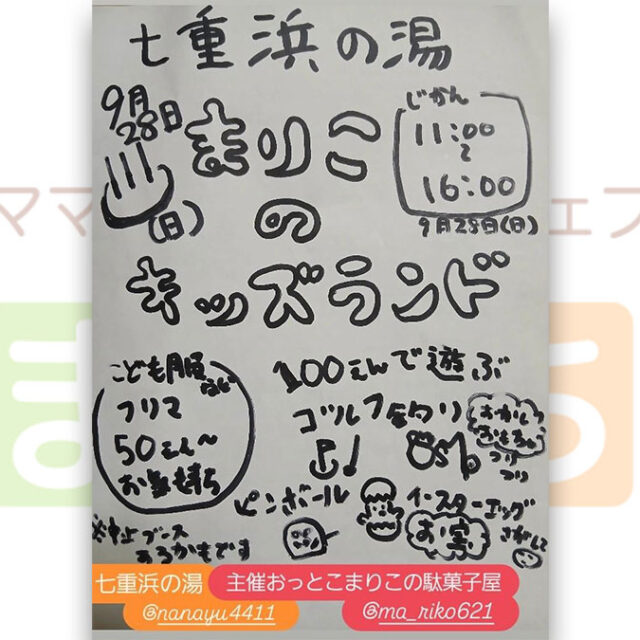 七重浜の湯
9月28日
(日)
まりこ
の
キッズランド
じかん
11:00
〜
16:00
9月28日(日)
こども服
フリマ
50えん〜
お気持ち
100えんで遊ぶ
ゴルフ
釣り
おかし
おもちゃ
つり
つり
ピンボール
イースターエッグ
さがして
お宝
※中止ブース
あるかもです
七重浜の湯
@nanayu4411
主催おっとこまりこの駄菓子屋
@ma_riko621
ママ
ェフ
ま
る